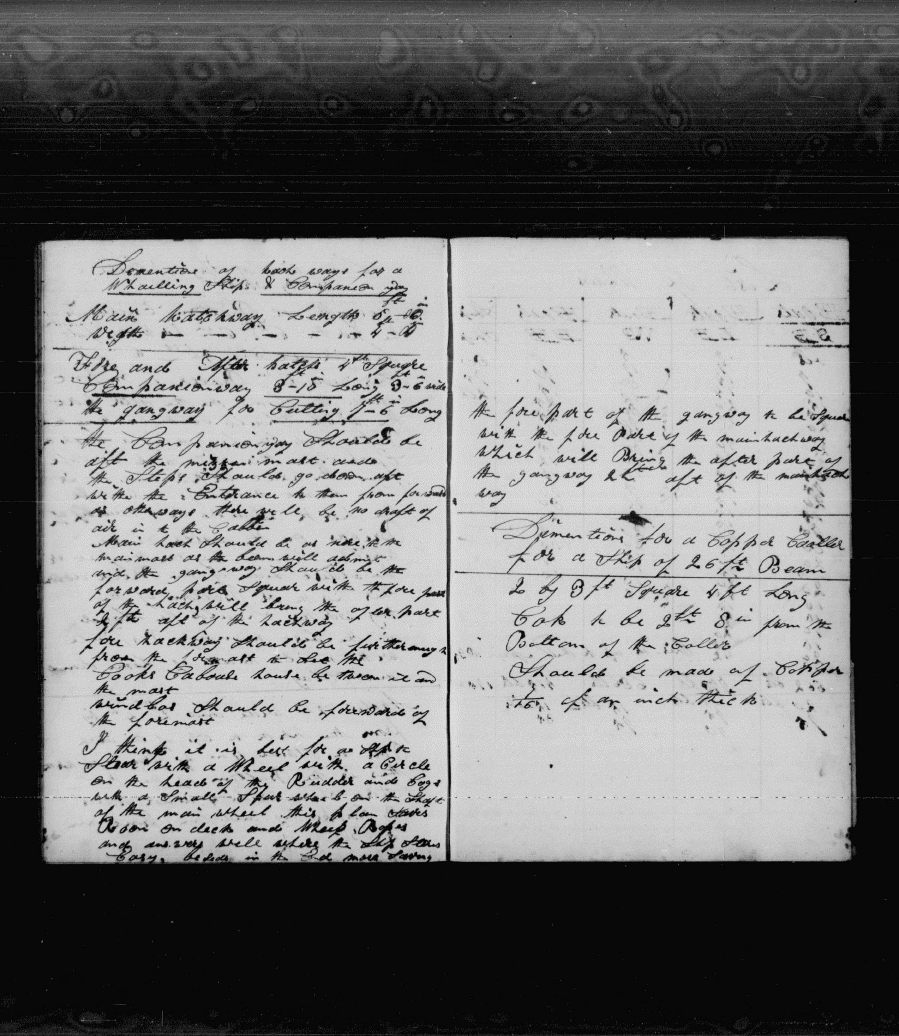 Dimentions of hach ways for a
Whailling Ship & Companion way
Main hatchway Length
Width
Fore and After hatch 4 ft Square
Companionway 3-10 Long 3-6 wide
the gangway for Cutting 7-6 Long
the Companionway Should be
aft the mizzen mast and
the Steps Should go down aft
with the Entrance to them from forward
as otherways there will be no draft of
air in to the Cabbin
Main hach Should be as near the
mainmast as the beam will admit
and the gangway Should be the
forward part Square with the fore part
of the hach will bring the after part
2 ft aft of the hachway
fore hachway Should be fur enough
from the foremast to Let the
Cooks Caboose house between it and
the mast
windlas Should be forwards of
the foremast
I think it is best for a Ship to
Stear with a Wheel with a Circle
on the head of the Rudder and Cogs
with a Small Spur wheel on the Shaft
of the main wheel this plan Saves
Room on deck and Wheel Ropes
and answers well where the Ship Stears
Easy, besides in the End more Saving
the fore part of the gangway to be Square
with the fore Part of the mainhachway
which will Bring the after part of
the gangway 2 ft aft of the mainhach
way
Dimentions for a Copper Cooller
for a Ship of 26 ft Beam
2 by 3 ft Square 4 ft Long
Cok to be 2 ft 8 in from the
Bottom of the Coller
Should be made of Copper
of an inch thick